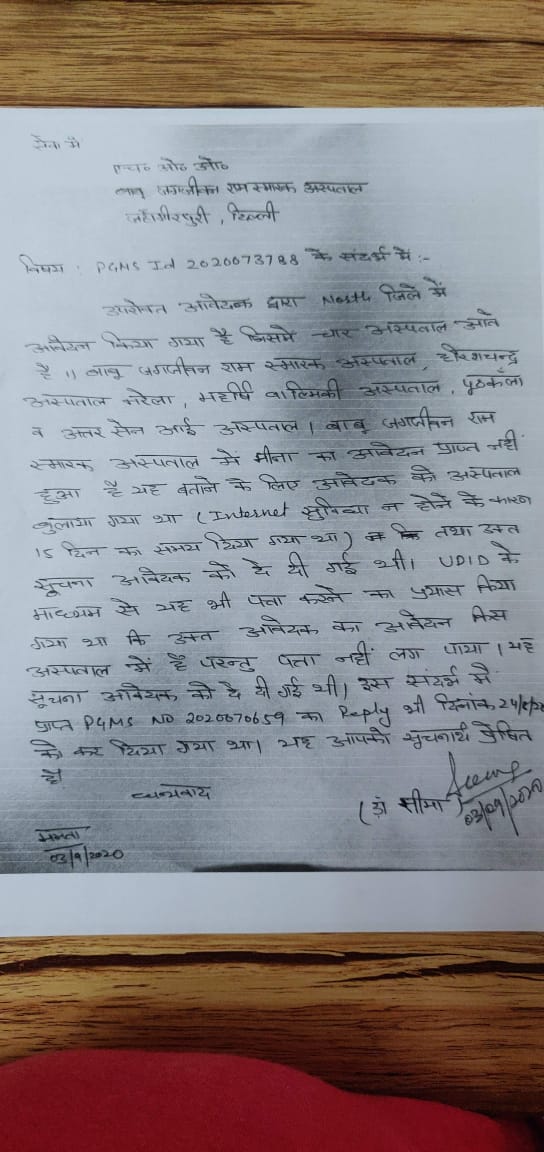 सेवा में
एच० ओ० ओ०
बाबू जगजीवन राम स्मारक अस्पताल
जहाँगीरपुरी, दिल्ली
विषय : PGMS Id 2020073788 के संदर्भ में :-
उपरोक्त आवेदक द्वारा North जिले में
आवेदन किया गया है जिसमे चार अस्पताल आते
है ।। बाबू जगजीवन राम स्मारक अस्पताल, हरिशचन्द्र
अस्पताल नरेला, महर्षि वाल्मिकी अस्पताल, पूठकला
व अत्तर सेन आई अस्पताल । बाबू जगजीवन राम
स्मारक अस्पताल में मीना का आवेदन प्राप्त नहीं
हुआ है यह बताने के लिए आवेदक को अस्पताल
बुलाया गया था (Internet सुविधा न होने के कारण
15 दिन का समय दिया गया था) तथा उक्त
सूचना आवेदक को दे दी गई थी। UDID के
माध्यम से यह भी पता करने का प्रयास किया
गया था कि उक्त आवेदक का आवेदन किस
अस्पताल में है परन्तु पता नहीं लग पाया । यह
सूचना आवेदक को दे दी गई थी। इस संदर्भ में
प्राप्त PGMS NO 2020070659 का Reply भी दिनांक 24/8/20
को कर दिया गया था। यह आपको सूचनार्थ प्रेषित
है।
धन्यवाद
(डॉ सीमा)
03/09/2020
ममता
03/9/2020